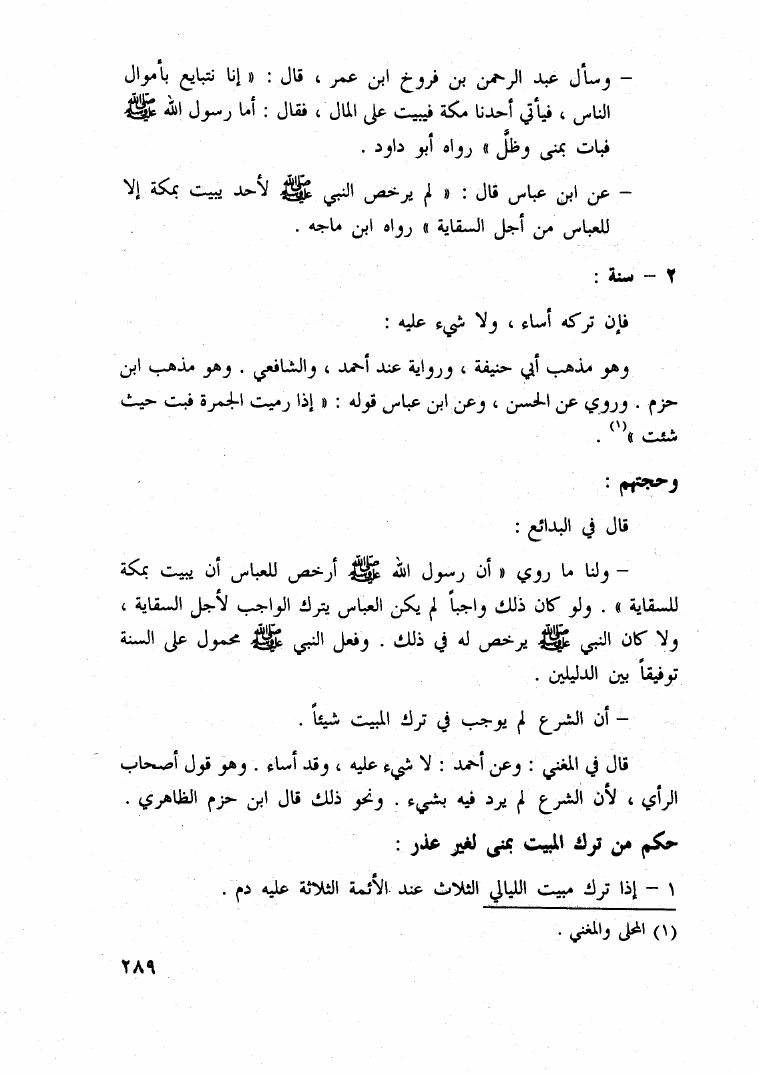 – وسأل عبد الرحمن بن فروخ ابن عمر ، قال : « إنا نتبايع بأموال
الناس ، فيأتي أحدنا مكة فيبيت على المال ، فقال : أما رسول الله ﷺ
فبات بمنى وظلَّ » رواه أبو داود .
– عن ابن عباس قال : « لم يرخص النبي ﷺ لأحد يبيت بمكة إلا
للعباس من أجل السقاية » رواه ابن ماجه .
٢ – سنة :
فإن تركه أساء ، ولا شيء عليه :
وهو مذهب أبي حنيفة ، ورواية عند أحمد ، والشافعي . وهو مذهب ابن
حزم . وروي عن الحسن ، وعن ابن عباس قوله : « إذا رميت الجمرة فبت حيث
شئت »(١) .
وحجتهم :
قال في البدائع :
– ولنا ما روي « أن رسول الله ﷺ أرخص للعباس أن يبيت بمكة
للسقاية » . ولو كان ذلك واجباً لم يكن العباس يترك الواجب لأجل السقاية ،
ولا كان النبي ﷺ يرخص له في ذلك . وفعل النبي ﷺ محمول على السنة
توفيقاً بين الدليلين .
– أن الشرع لم يوجب في ترك المبيت شيئاً .
قال في المغني : وعن أحمد : لا شيء عليه ، وقد أساء . وهو قول أصحاب
الرأي ، لأن الشرع لم يرد فيه بشيء . ونحو ذلك قال ابن حزم الظاهري .
حكم من ترك المبيت بمنى لغير عذر :
١ – إذا ترك مبيت الليالي الثلاث عند الأئمة الثلاثة عليه دم .
(١) المحلى والمغني .
٢٨٩